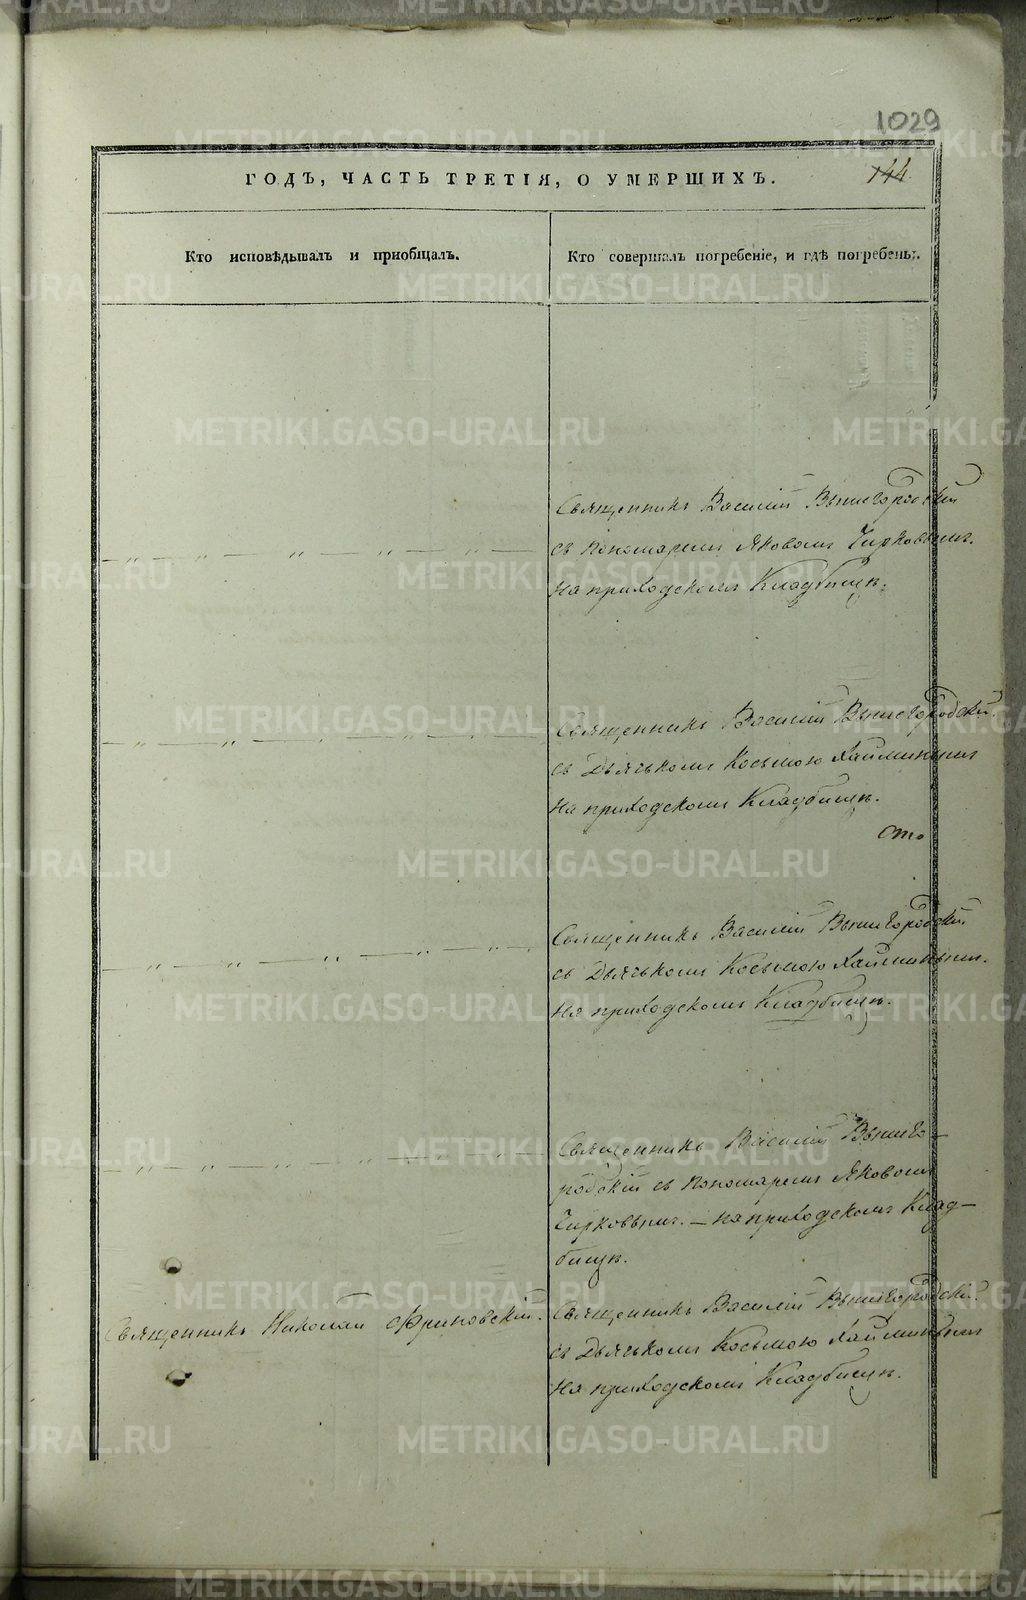 1029
144
ГОДЪ, ЧАСТЬ ТРЕТІЯ, О УМЕРШИХЪ.
Кто исповѣдывалъ и пріобщалъ.
Кто совершалъ погребеніе, и гдѣ погребены.
Священникъ Василій Вышегородскій
съ пономаремъ Яковомъ Чирковымъ.
на приходскомъ Кладбищѣ.
Священникъ Василій Вышегородскій.
съ Дьячкомъ Косьмою Хайминымъ
на приходскомъ Кладбищѣ.
Священникъ Василій Вышегородскій
съ Дьячкомъ Косьмою Хайминымъ.
на приходскомъ Кладбищѣ.
Священникъ Василій Вышего-
родскій съ пономаремъ Яковомъ
Чирковымъ. – на приходскомъ Клад-
бищѣ.
Священникъ Николай Фриновскій.
Священникъ Василій Вышегородскій.
съ Дьячкомъ Косьмою Хайминымъ
на приходскомъ Кладбищѣ.
METRIKI.GASO-URAL.RU